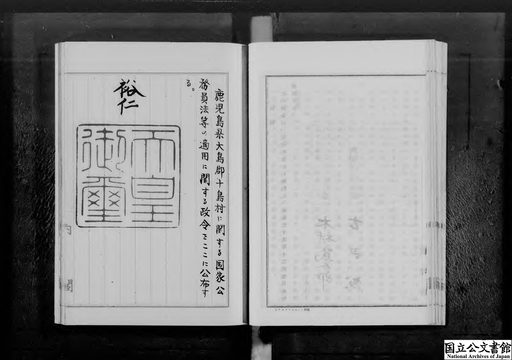 鹿児島県大島郡十島村に関する国家公
務員法等の適用に関する政令をここに公布す
る。
裕仁
天皇
御璽
国立公文書館
National Archives of Japan